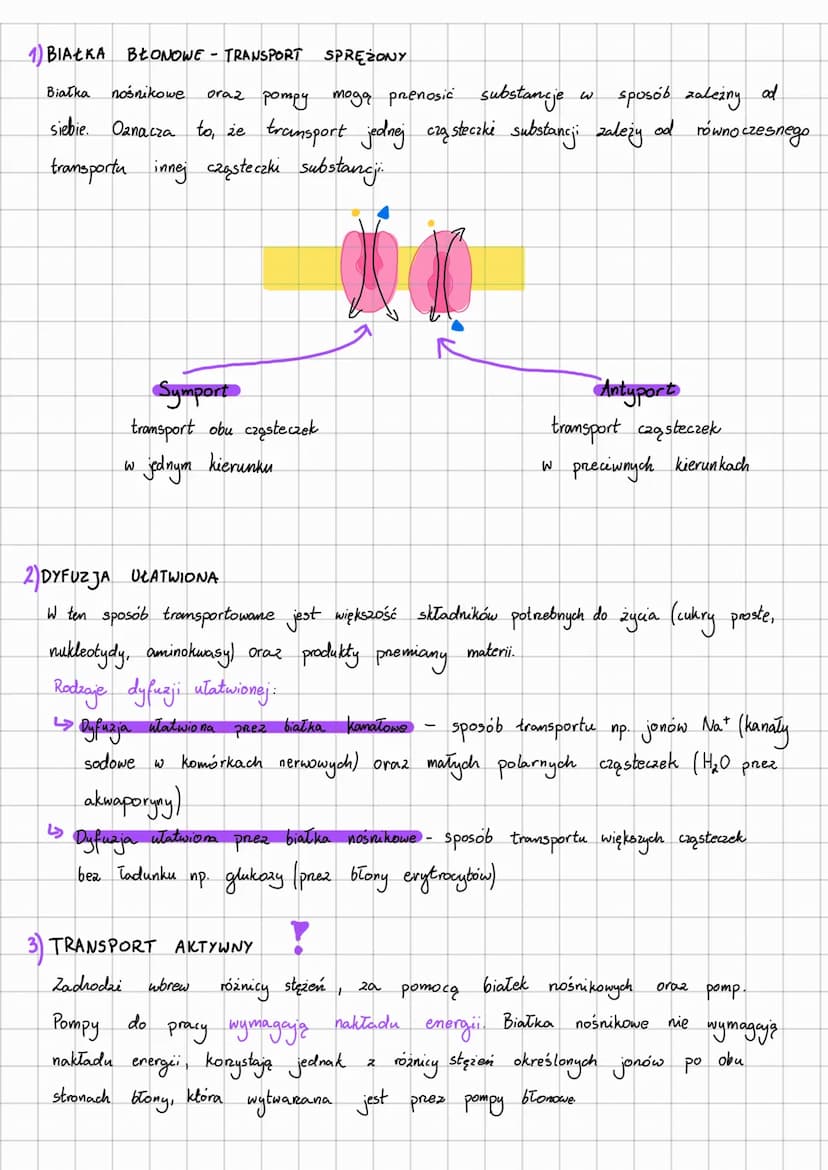 1) BIAŁKA BŁONOWE - TRANSPORT SPRĘŻONY
Białka nośnikowe oraz pompy mogą przenosić substancje w sposób zależny od
siebie. Oznacza to, że transport jednej cząsteczki substancji zależy od równoczesnego
transportu innej cząsteczki substancji.
Symport
Antyport
transport obu cząsteczek
transport cząsteczek
w jednym kierunku
w przeciwnych kierunkach
2) DYFUZJA UŁATWIONA
W ten sposób transportowane jest większość składników potrzebnych do życia (cukry proste,
nukleotydy, aminokwasy) oraz produkty przemiany materii.
Rodzaje dyfuzji ułatwionej:
↳ Dyfuzja ułatwiona przez białka kanałowe - sposób transportu np. jonów Na⁺ (kanały
sodowe w komórkach nerwowych) oraz małych polarnych cząsteczek (H₂O przez
akwaporyny)
↳ Dyfuzja ułatwiona przez białka nośnikowe - sposób transportu większych cząsteczek
bez ładunku np. glukozy (przez błony erytrocytów)
3) TRANSPORT AKTYWNY !
Zachodzi wbrew różnicy stężeń, za pomocą białek nośnikowych oraz pomp.
Pompy do pracy wymagają nakładu energii. Białka nośnikowe nie wymagają
nakładu energii, korzystają jednak z różnicy stężeń określonych jonów po obu
stronach błony, która wytwarzana jest przez pompy błonowe.